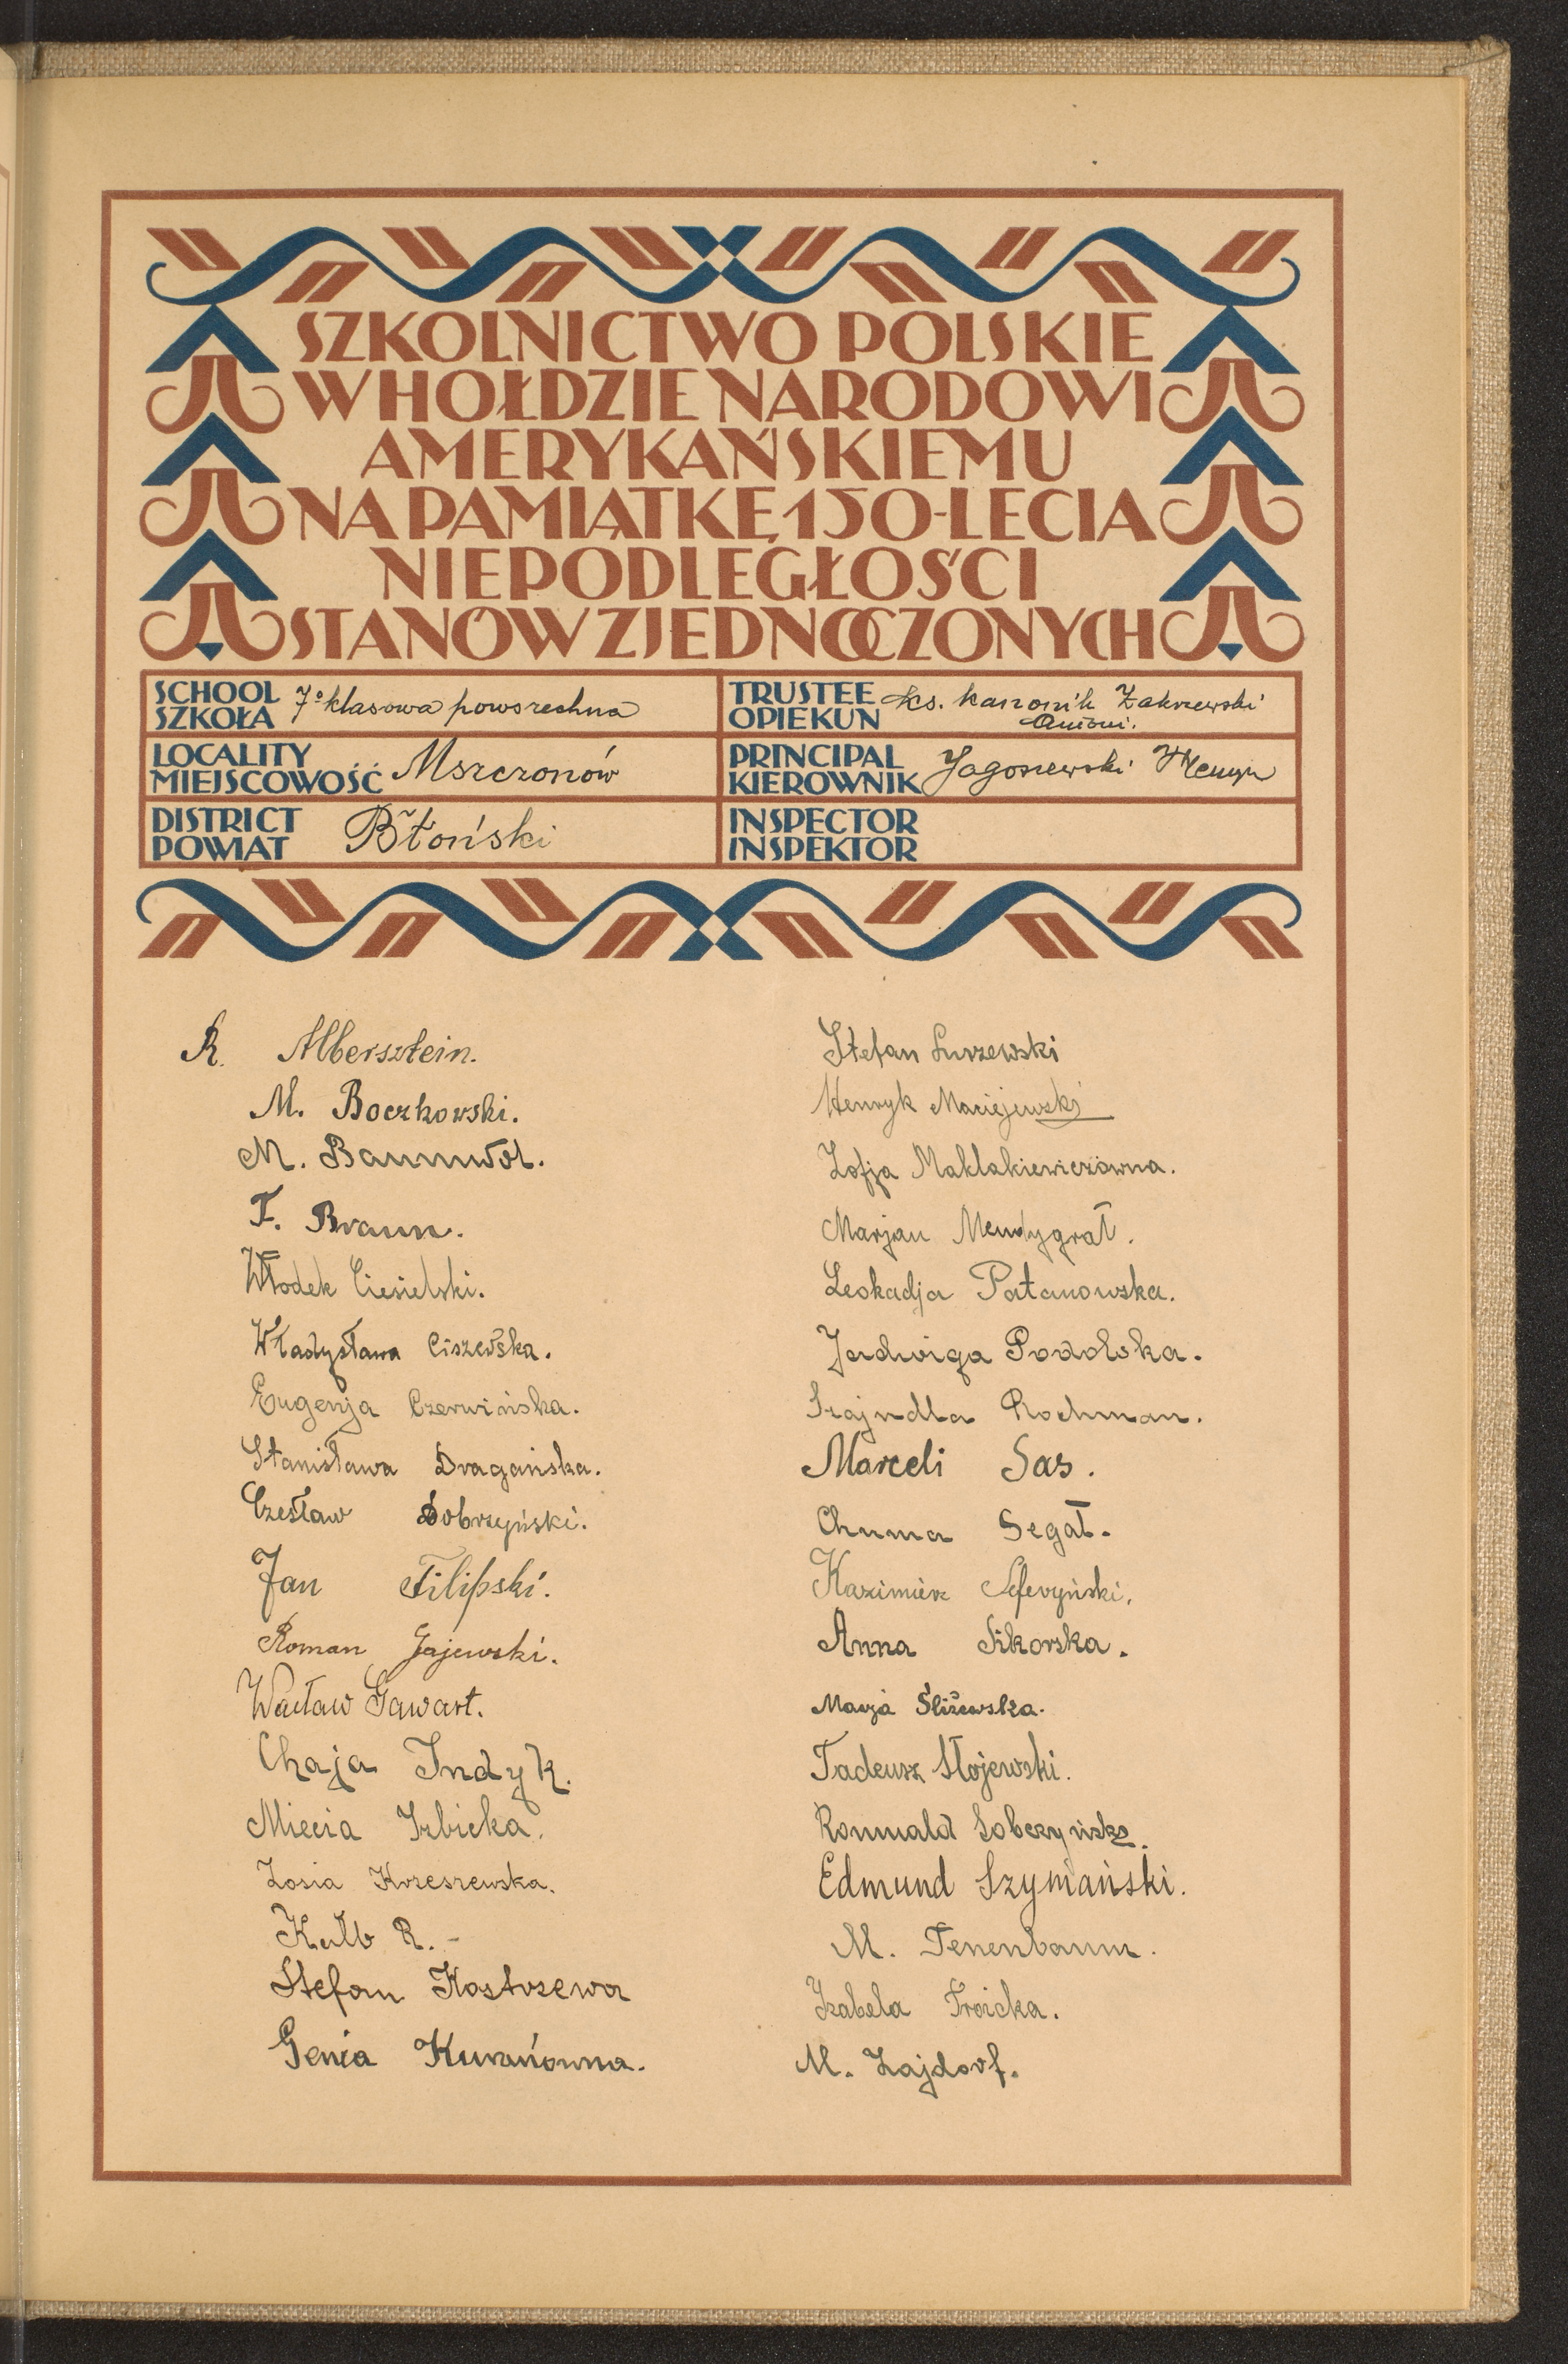 SZKOLNICTWO POLSKIE
W HOŁDZIE NARODOWI
AMERYKAŃSKIEMU
NA PAMIĄTKĘ 150-LECIA
NIEPODLEGŁOŚCI
STANÓW ZJEDNOCZONYCH
SCHOOL
SZKOŁA
7o klasowa powszechna
TRUSTEE
OPIEKUN
ks. kanonik Zakrzewski
Antoni.
LOCALITY
MIEJSCOWOŚĆ
Mszczonów
PRINCIPAL
KIEROWNIK
Jagoszewski Henryk
DISTRICT
POWIAT
Błoński
INSPECTOR
INSPEKTOR
R. Albersztein.
M. Boczkowski.
M. Baumwol.
F. Braun.
Włodek Ciesielski.
Władysława Ciszewska.
Eugenja Czerwińska.
Stanisława Dragańska.
Czesław Dobrzyński.
Jan Filipski.
Roman Gajewski.
Wacław Gawart.
Chaja Indyk.
Miecia Izbicka.
Zosia Korzeszewska.
Kalb R. -
Stefan Kostrzewa
Genia Kuranówna.
Stefan Luszewski
Henryk Maciejewski
Zofja Maklakiewiczówna.
Marjan Mendygrał.
Leokadja Patanowska.
Jadwiga Podolska.
Szajndla Rochman.
Marceli Sas.
Chuma Segał.
Kazimierz
Anna Sikorska.
Marja Śliżewska.
Tadeusz Stojewski.
Romuald Sobczyński.
Edmund Szymański.
M. Tenenbaum.
Izabela Troicka.
M. Zajdorf.